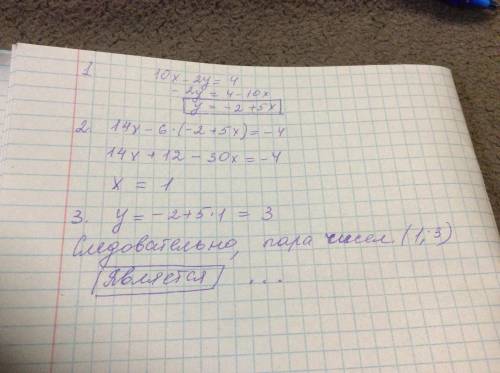 1. 10x - 2y = 4
- 2y = 4 - 10x
y = -2 + 5x
2. 14x - 6·(-2 + 5x) = -4
14x + 12 - 30x = -4
x = 1
3. y = -2 + 5·1 = 3
Следовательно, пара чисел (1; 3)
является ...